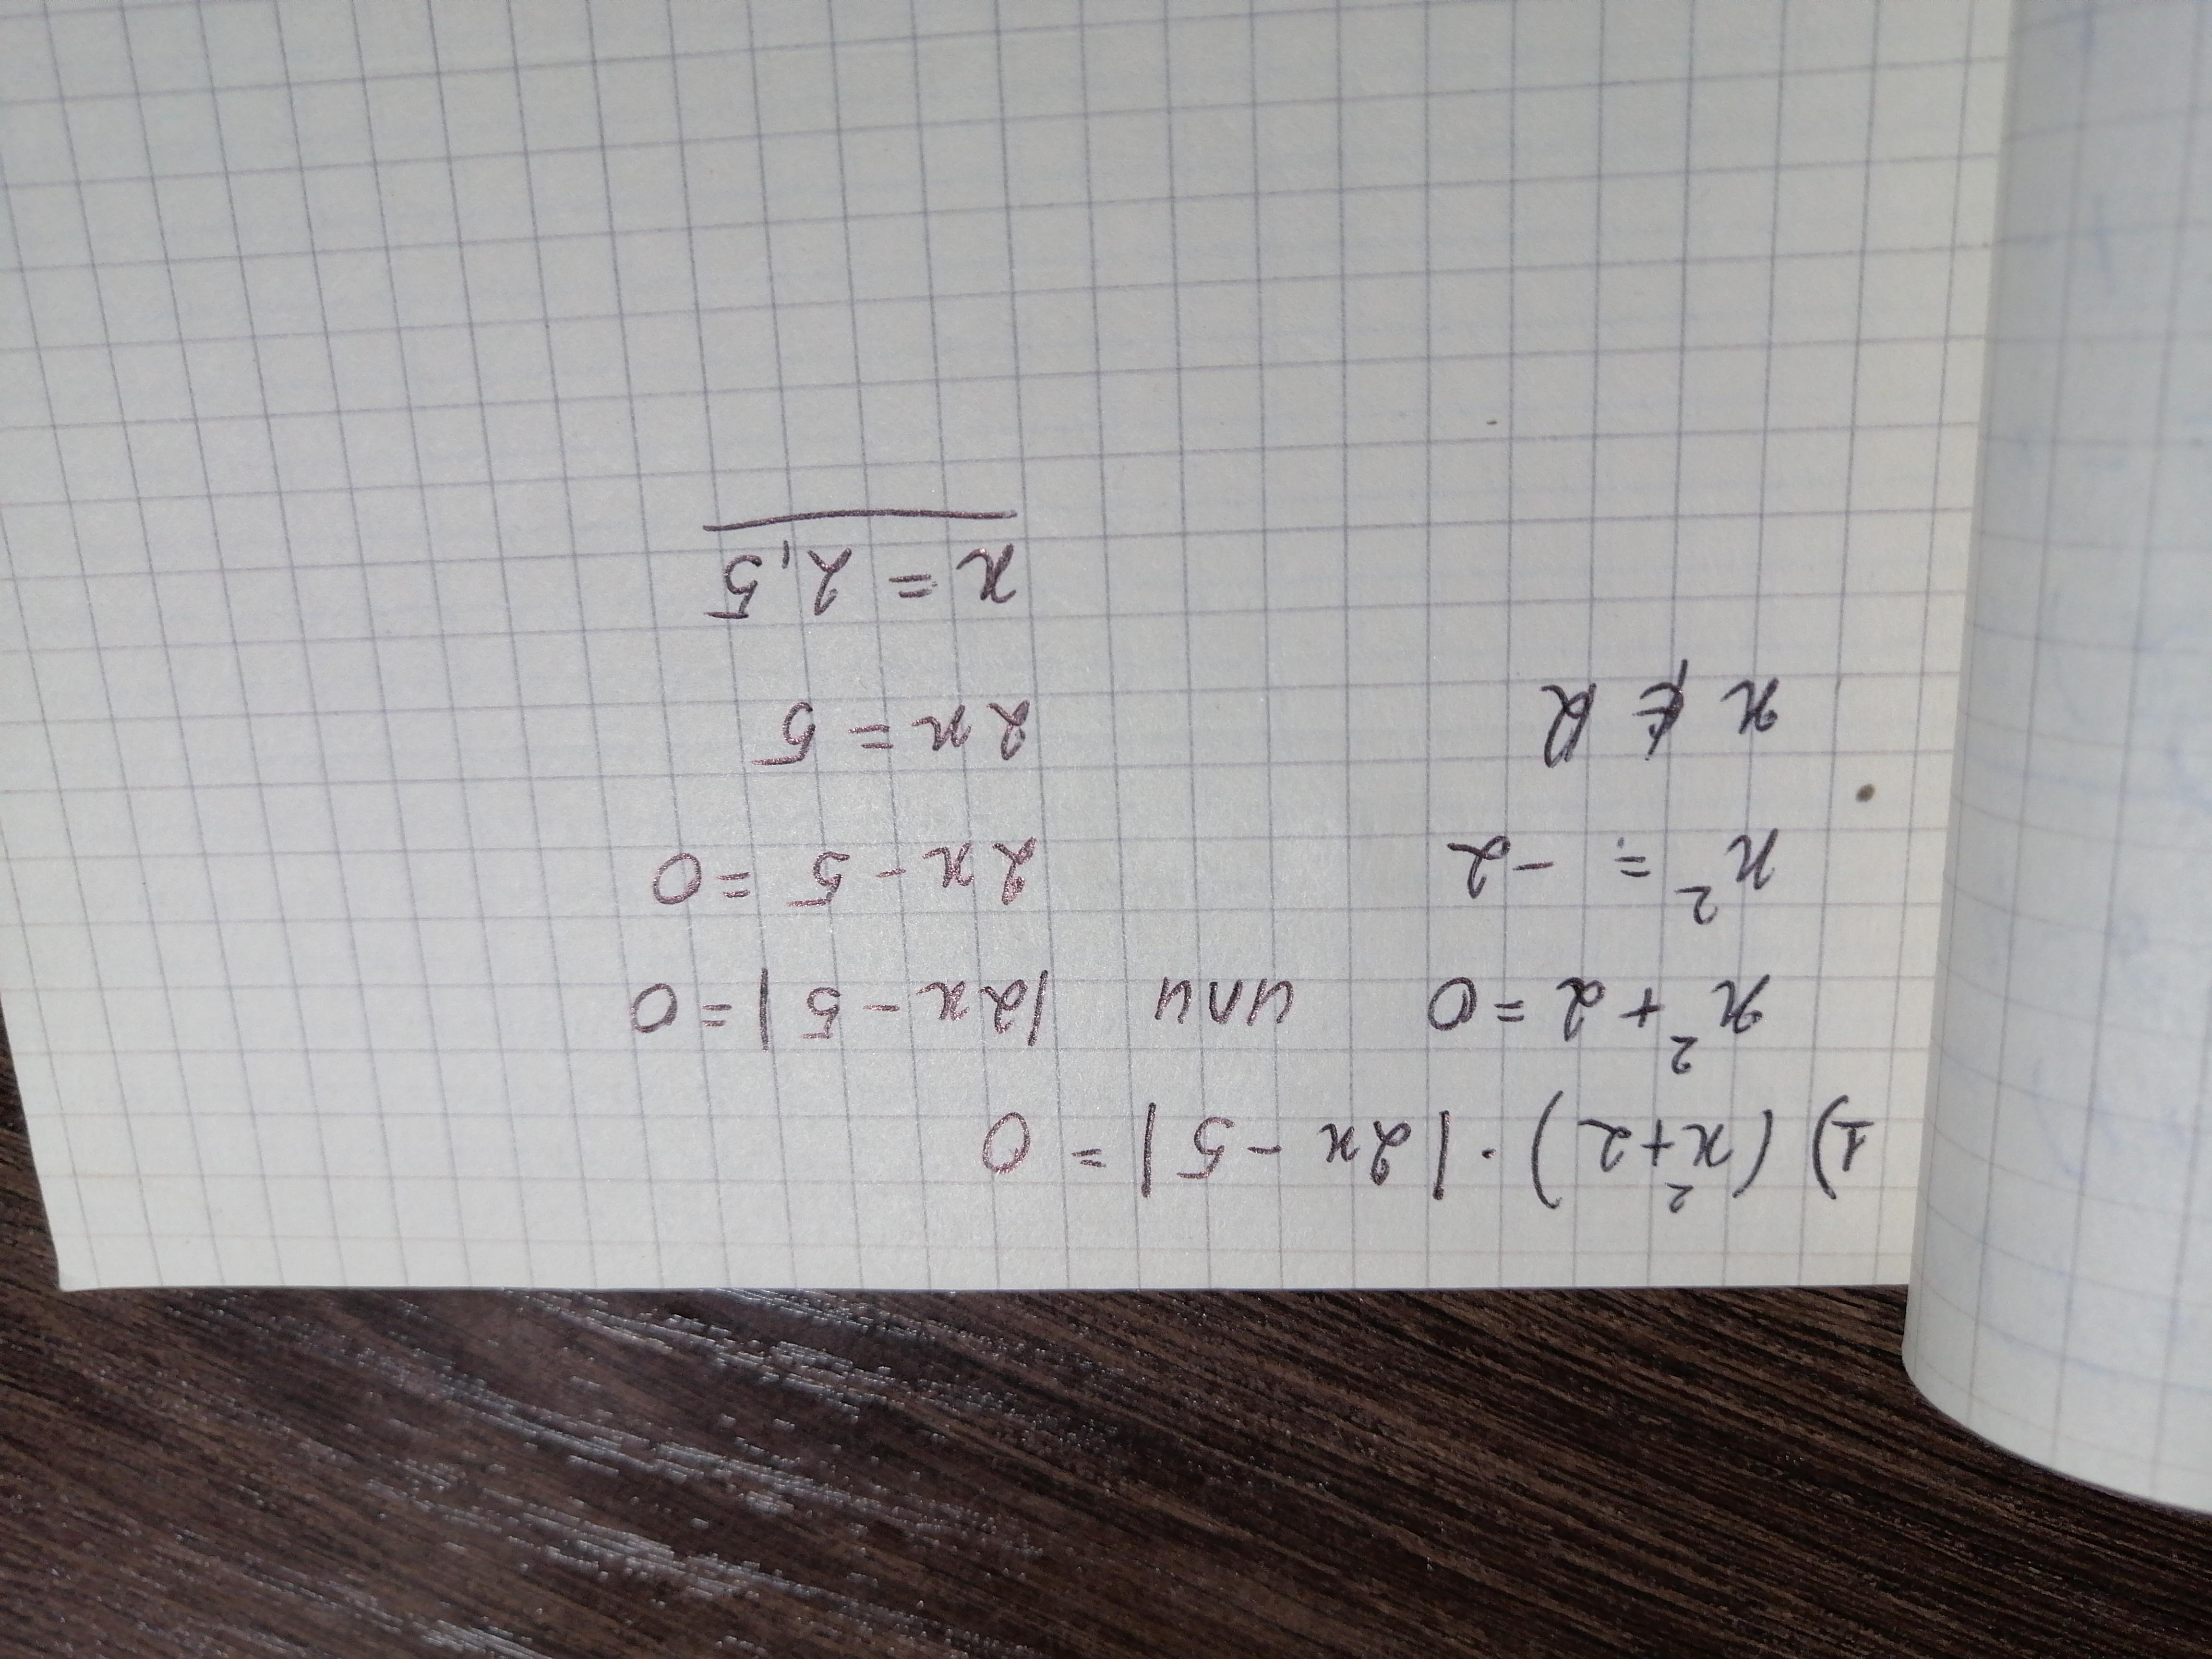 1) (x²+2)·|2x-5| = 0
x²+2=0 или |2x-5|=0
x² = -2 2x-5=0
x ∉ R 2x=5
x = 2,5